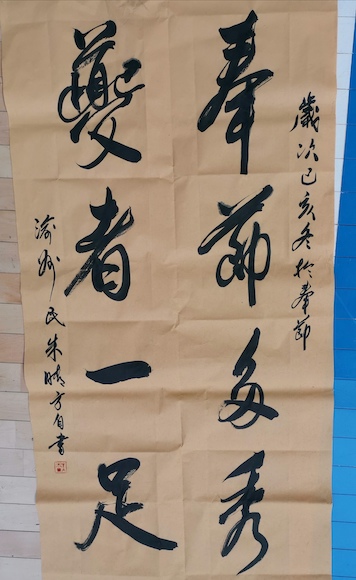 歲次己亥冬於奉節
奉節多秀
夔者一足
渝州民朱曉方自書